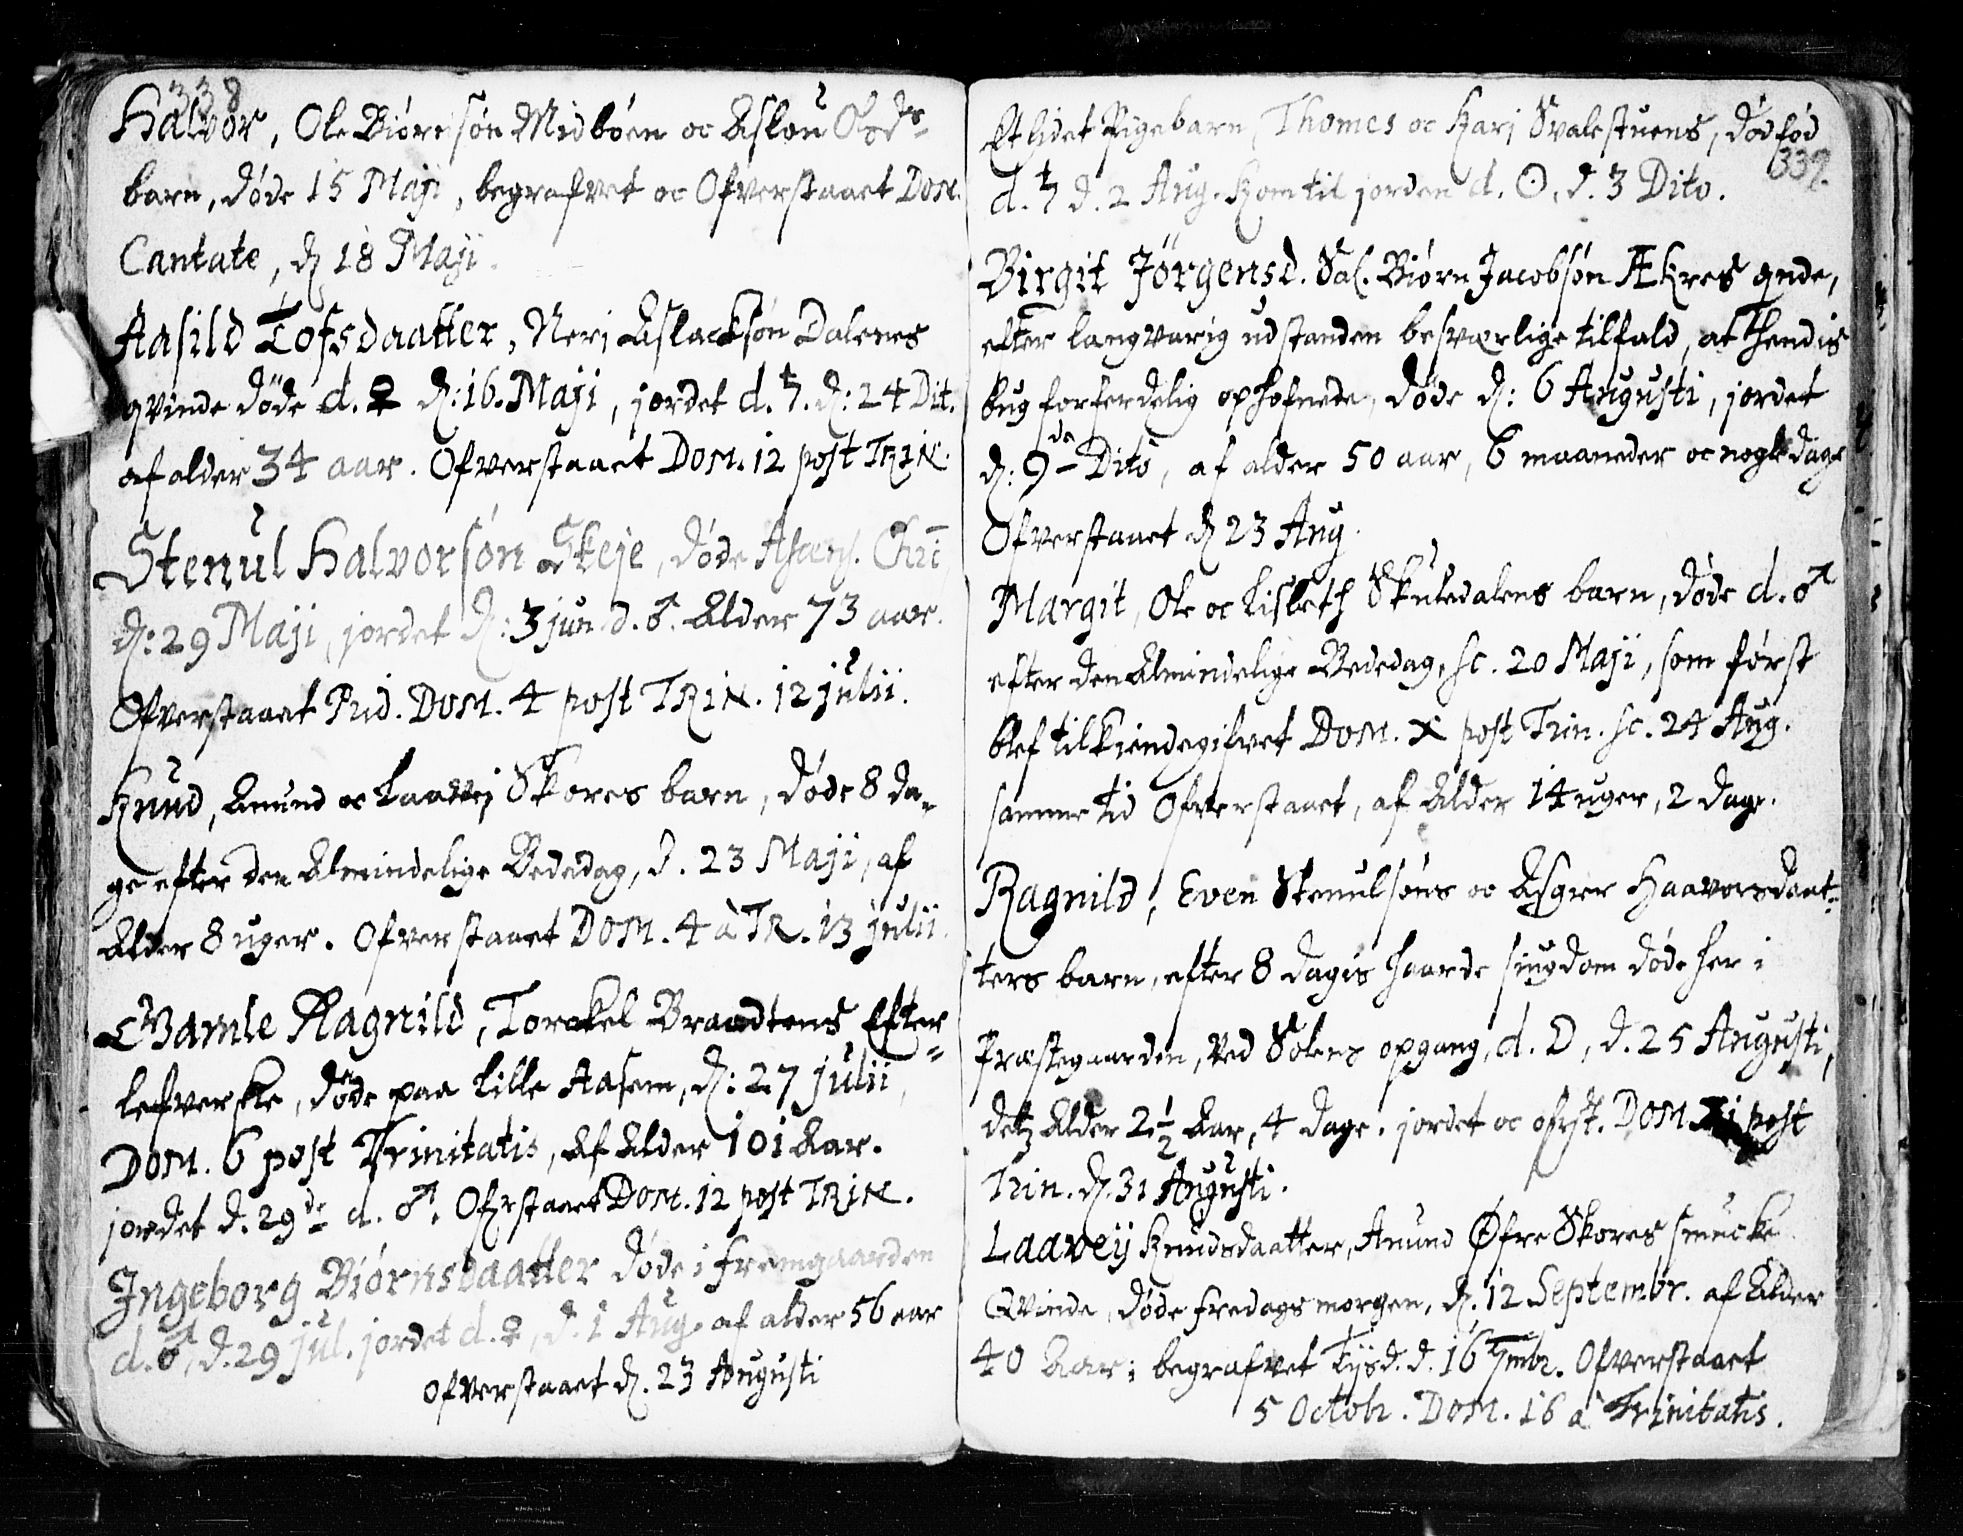 338
Halvor, Ole Biørnsøn Midbøen oc Aslou
barn, døde 15 Maji, begrafvet oc Ofverstaaet Dom.
Cantate, d. 18 Maji.
Aasild Tofsdaatter, Neri Aslacksøn Dalenes
qvinde døde d. ♀ d: 16. Maji, jordet d. ♄. d: 24 Dit.
af alder 34 aar. Ofverstaaet Dom. 12 post TRIN.
Stenul Halvorsøn Skeje, døde Ascens. Chri
d: 29 Maji, jordet d: 3 jun d. ♂. Alder 73 aar.
Ofverstaaet Prid. Dom. 4 post TRIN. 12 julii.
Knud, Anund oc Laavej Skores barn, døde 8 da-
ge efter den Almindelige Bededag, d. 23 Maji, af
Alder 8 uger. Ofverstaaet Dom. 4 à TR. 13 julii.
Gamle Ragnild, Torckel Brandtens Efter-
lefverske, døde paa Lille Aasem, d: 27 julii,
Dom. 6 post Trinitatis, Af Alder 101 Aar.
jordet d. 29de d. ♂. Ofrstaaet Dom. 12 post TRIN.
Ingeborg Biørnsdaatter døde i fremgaarden
d. ♂, d. 29 jul. jordet d. ♀, d. 1 Aug. af alder 56 aar
Ofverstaaet d. 23 Augusti
339.
Et lidet Pigebarn, Thomes oc Kari Svalestuens, dødfød
d. ♄ d. 2 Aug. kom til jorden d. ☉. d. 3 Dito.
Birgit Jørgensd. Sal. Biørn Jacobsøn Ækres qnde,
efter langvarig udstanden besværlige tilfald, at Hendis
bug forferdelig ophofnede, døde d: 6 Augusti, jordet
d: 9de Dito, af alder 50 aar, 6 maaneder oc nogle dage
Ofverstaaet d 23 Aug.
Margit, Ole oc Lisbeth Skuledalens barn, døde d. ♂
efter den Almindelige Bededag, sc. 20 Maji, som først
blef tilkiendegifvet Dom. X post Trin. sc. 24 Aug.
samme tid Ofverstaaet, af Alder 14 uger, 2 dage.
Ragnild, Even Stenulsøns oc Asgier Haavorsdaat-
ters barn, efter 8 dagis haarde siugdom døde her i
Præstegaarden, ved Solens opgang, d. ☽, d. 25 Augusti,
detz Alder 2½ Aar, 4 dage. jordet oc ofrst. Dom. XI post
Trin. d. 31 Augusti.
Laavej Knudsdaatter, Anund Øfre Skores smucke
Qvinde, døde fredags morgen, d. 12 Septembr. af Alder
40 Aar; begrafvet Tysd. d. 16 7mbr. Ofverstaaet
5 Octobr. Dom. 16 à Trinitatis.